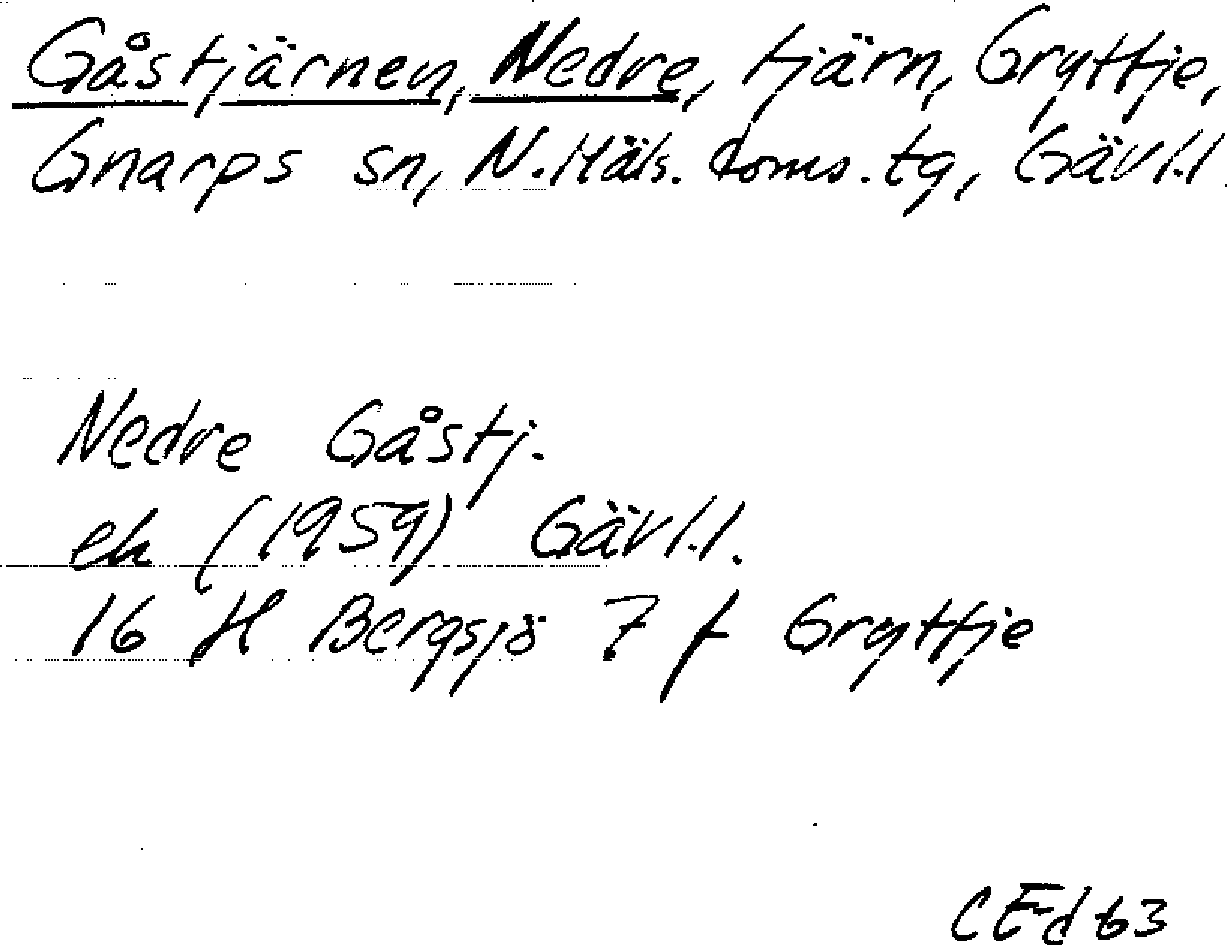 Gåstjärnen, Nedre, tjärn, Gryttje,
Gnarps sn, N.Häls. doms. tg, Gävl.l.
Nedre Gåstj.
ek (1959) Gävl.l.
16 H Bergsjö 7 f Gryttje
CEd 63